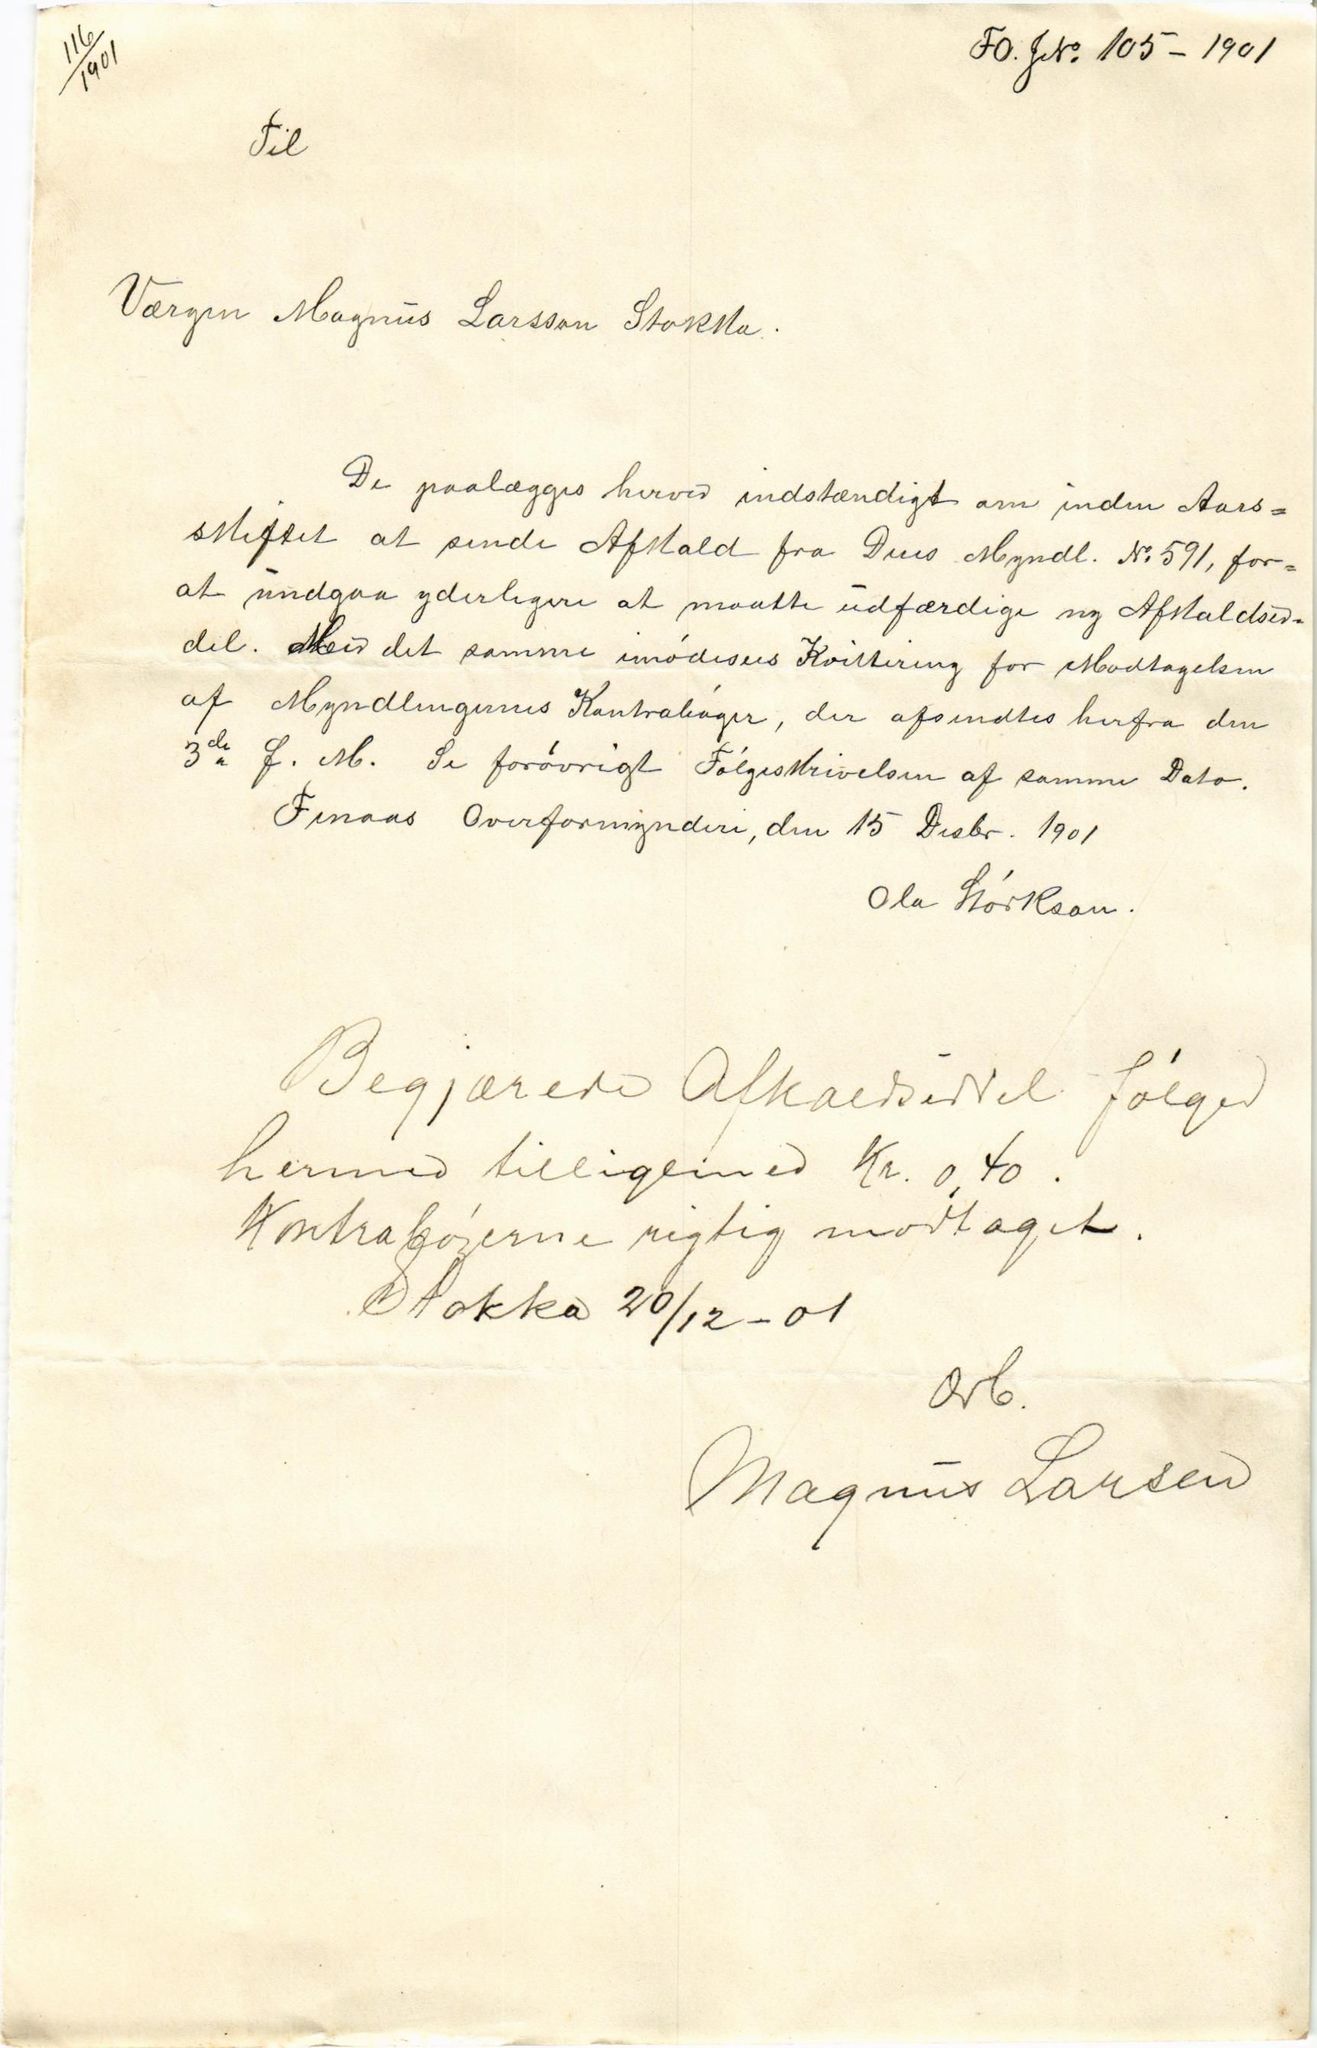 116/1901
FO. J.No. 105 - 1901
Til
Værgen Magnus Larsson Stokka.
De paalægges herved indstændigt om inden Aars=
skiftet at sende Afkald fra Deres Myndl. No. 591, for=
at undgaa yderligere at maatte udfærdige ny Afkaldsed=
del. Med det samme imødesees Kvittering for Modtagelsen
af Myndlingernes Kontrabøger, der afsendtes herfra den
3de f. M. Se forøvrigt Følgeskrivelsen af samme Dato.
Finaas Overformynderi, den 15 Desbr. 1901
Ola Størkson.
Begjærede Afkaldseddel følger
hermed tilligemed Kr. 0,40.
Kontrabøgerne rigtig modtaget.
Stokka 20/12 - 01
Ærb.
Magnus Larsen